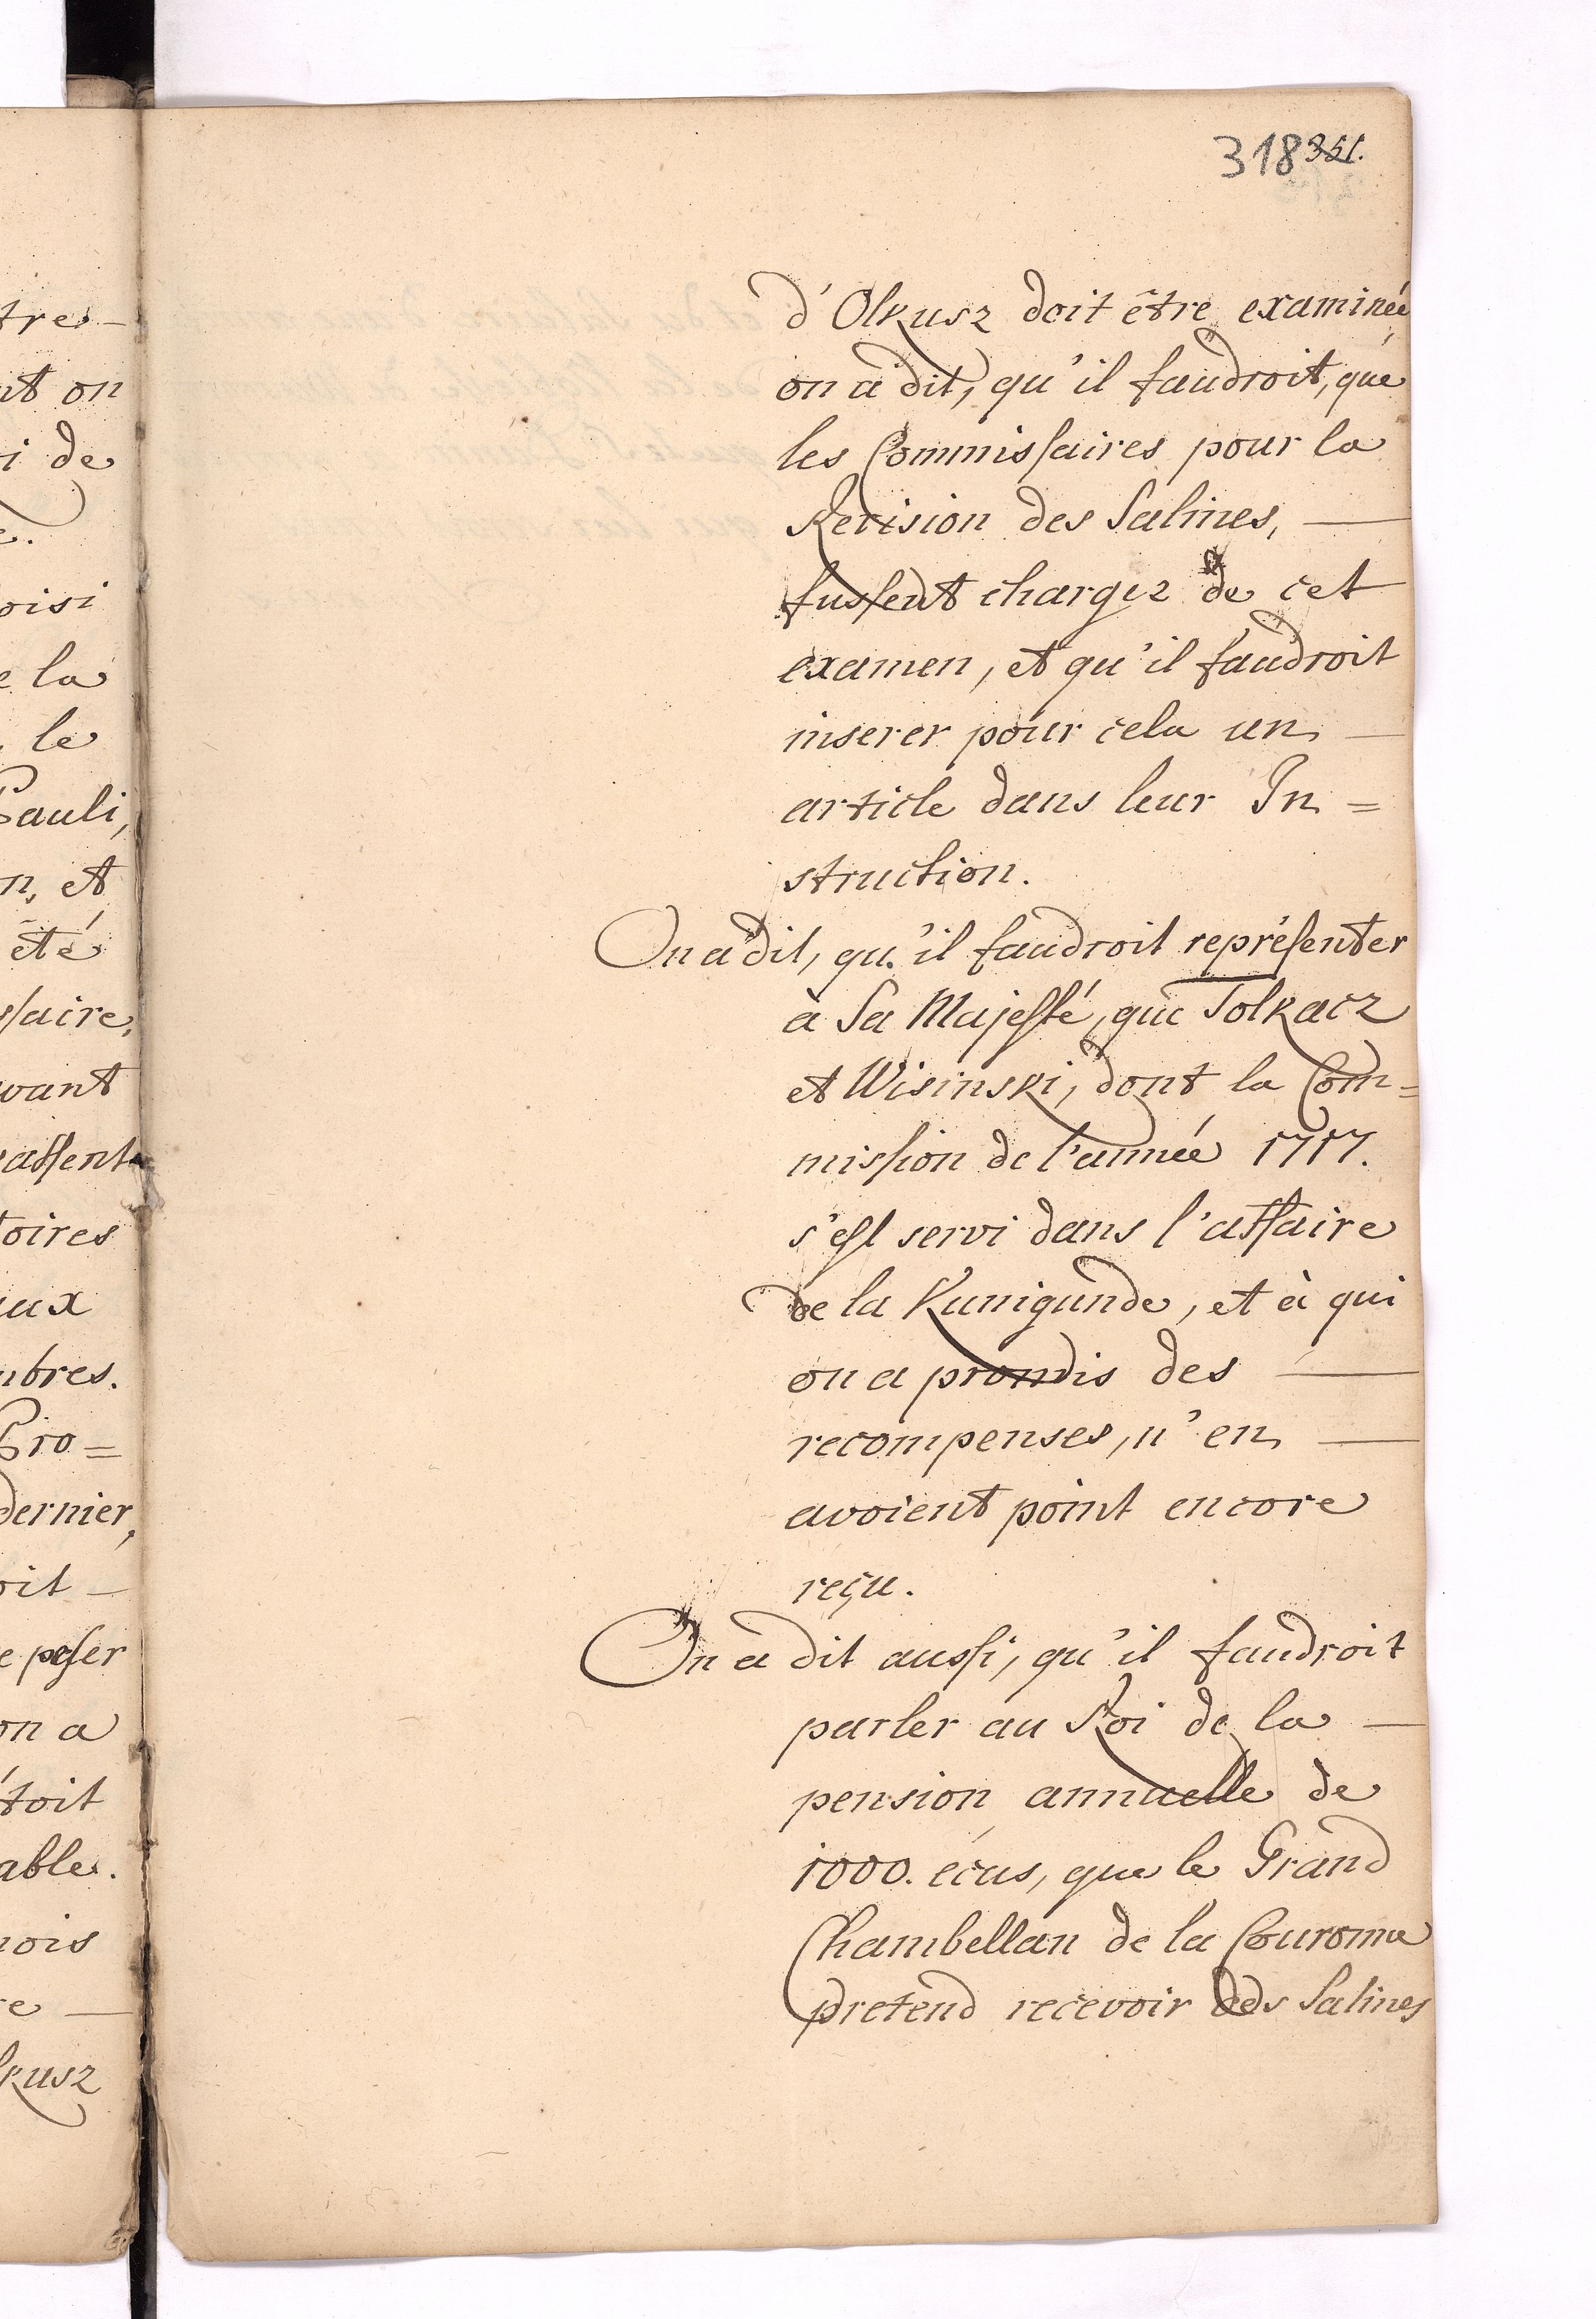 tre
nt on
i de
e.
oisi
e la
le
Pauli,
n, et
été
ssaire,
vant
assent
toires
aux
mbres.
Pro=
dernier,
oit
e poser
on a
étoit
able.
nois
re
lkusz
318 351.
d'Olkusz doit être examinée
on a dit, qu'il faudroit, que
les Commissaires pour la
Revision des Salines,
fussent chargez de cet
examen, et qu'il faudroit
inserer pour cela un
article dans leur In=
struction.
On a dit, qu'il faudroit représenter
à Sa Majesté, que Tolkacz
et Wisinski, dont la Com=
mission de l'année 1717.
s'est servi dans l'affaire
de la Kunigunde, et à qui
on a promis des
recompenses, n'en
avoient point encore
reçu.
On a dit aussi, qu'il faudroit
parler au Roi de la
pension annuelle de
1000. écus, que le Grand
Chambellan de la Couronne
pretend recevoir des Salines